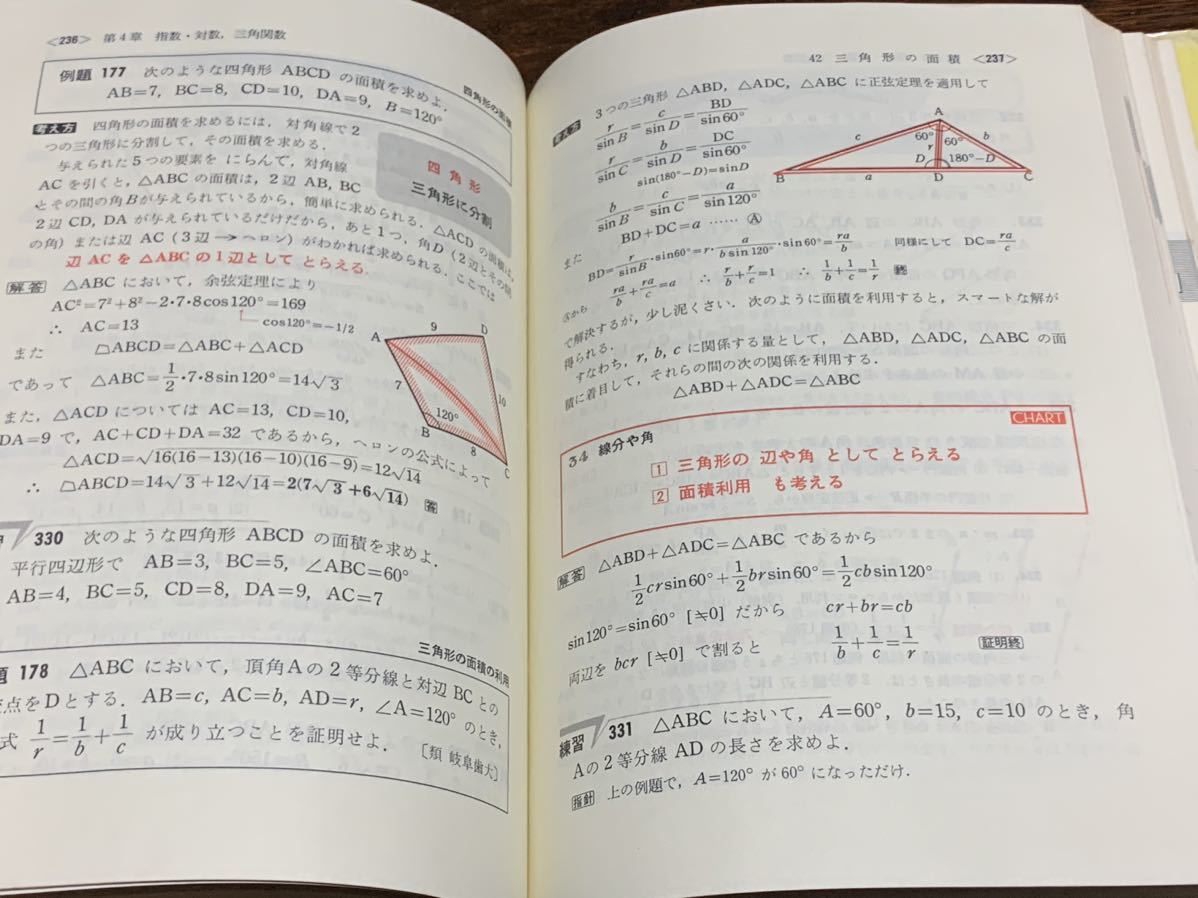 <236> 第4章 指数・対数，三角関数
例題 177 次のような四角形 ABCD の面積を求めよ．
AB=7，BC=8，CD=10，DA=9，B=120°
四角形の面積
考え方 四角形の面積を求めるには，対角線で2
つの三角形に分割して，その面積を求める．
与えられた5つの要素を にらんて，対角線
ACを引くと，△ABCの面積は，2辺 AB, BC
とその間の角Bが与えられているから，簡単に求められる．△ACDの面積は，
2辺 CD, DA が与えられているだけだから，あと1つ，角D（2辺とその間
の角）または辺 AC（3辺 → ヘロン）がわかれば求められる．ここでは
辺 AC を △ABC の1辺として とらえる．
四 角 形
三角形に分割
解答 △ABC において，余弦定理により
AC²=7²+8²−2・7・8cos120°=169
cos120°=−1/2
∴ AC=13
また □ABCD=△ABC+△ACD
であって △ABC=1/2・7・8sin120°=14√3
また，△ACD については AC=13，CD=10，
DA=9 で，AC+CD+DA=32 であるから，ヘロンの公式によって
△ACD=√16(16−13)(16−10)(16−9)=12√14
∴ □ABCD=14√3+12√14=2(7√3+6√14) 答
A 9 D
7 10
120°
B 8 C
330 次のような四角形 ABCD の面積を求めよ．
平行四辺形で AB=3，BC=5，∠ABC=60°
AB=4，BC=5，CD=8，DA=9，AC=7
三角形の面積の利用
題 178 △ABC において，頂角Aの2等分線と対辺 BC との
交点をDとする．AB=c，AC=b，AD=r，∠A=120° のとき，
式 1/r=1/b+1/c が成り立つことを証明せよ．
〔類 岐阜歯大〕
42 三角形の面積 <237>
考え方 3つの三角形 △ABD，△ADC，△ABC に正弦定理を適用して
r/sinB=c/sinD=BD/sin60°
r/sinC=b/sinD=DC/sin60°
sin(180°−D)=sinD
b/sinB=c/sinC=a/sin120°
A
c 60° b
r 60°
D 180°−D
B a D C
また BD+DC=a …… Ⓐ
BD=r/sinB・sin60°=r・a/bsin120°・sin60°=ra/b 同様にして DC=ra/c
Ⓐから ra/b+ra/c=a ∴ r/b+r/c=1 ∴ 1/b+1/c=1/r 終
で解決するが，少し泥くさい．次のように面積を利用すると，スマートな解が
得られる．
すなわち，r, b, c に関係する量として，△ABD，△ADC，△ABC の面
積に着目して，それらの間の次の関係を利用する．
△ABD+△ADC=△ABC
CHART
34 線分や角
1 三角形の 辺や角 として とらえる
2 面積利用 も考える
解答 △ABD+△ADC=△ABC であるから
1/2crsin60°+1/2brsin60°=1/2cbsin120°
sin120°=sin60° [≒0] だから cr+br=cb
両辺を bcr [≒0] で割ると 1/b+1/c=1/r 証明終
練習 331 △ABC において，A=60°，b=15，c=10 のとき，角
Aの2等分線 AD の長さを求めよ．
指針 上の例題で，A=120° が 60° になっただけ．